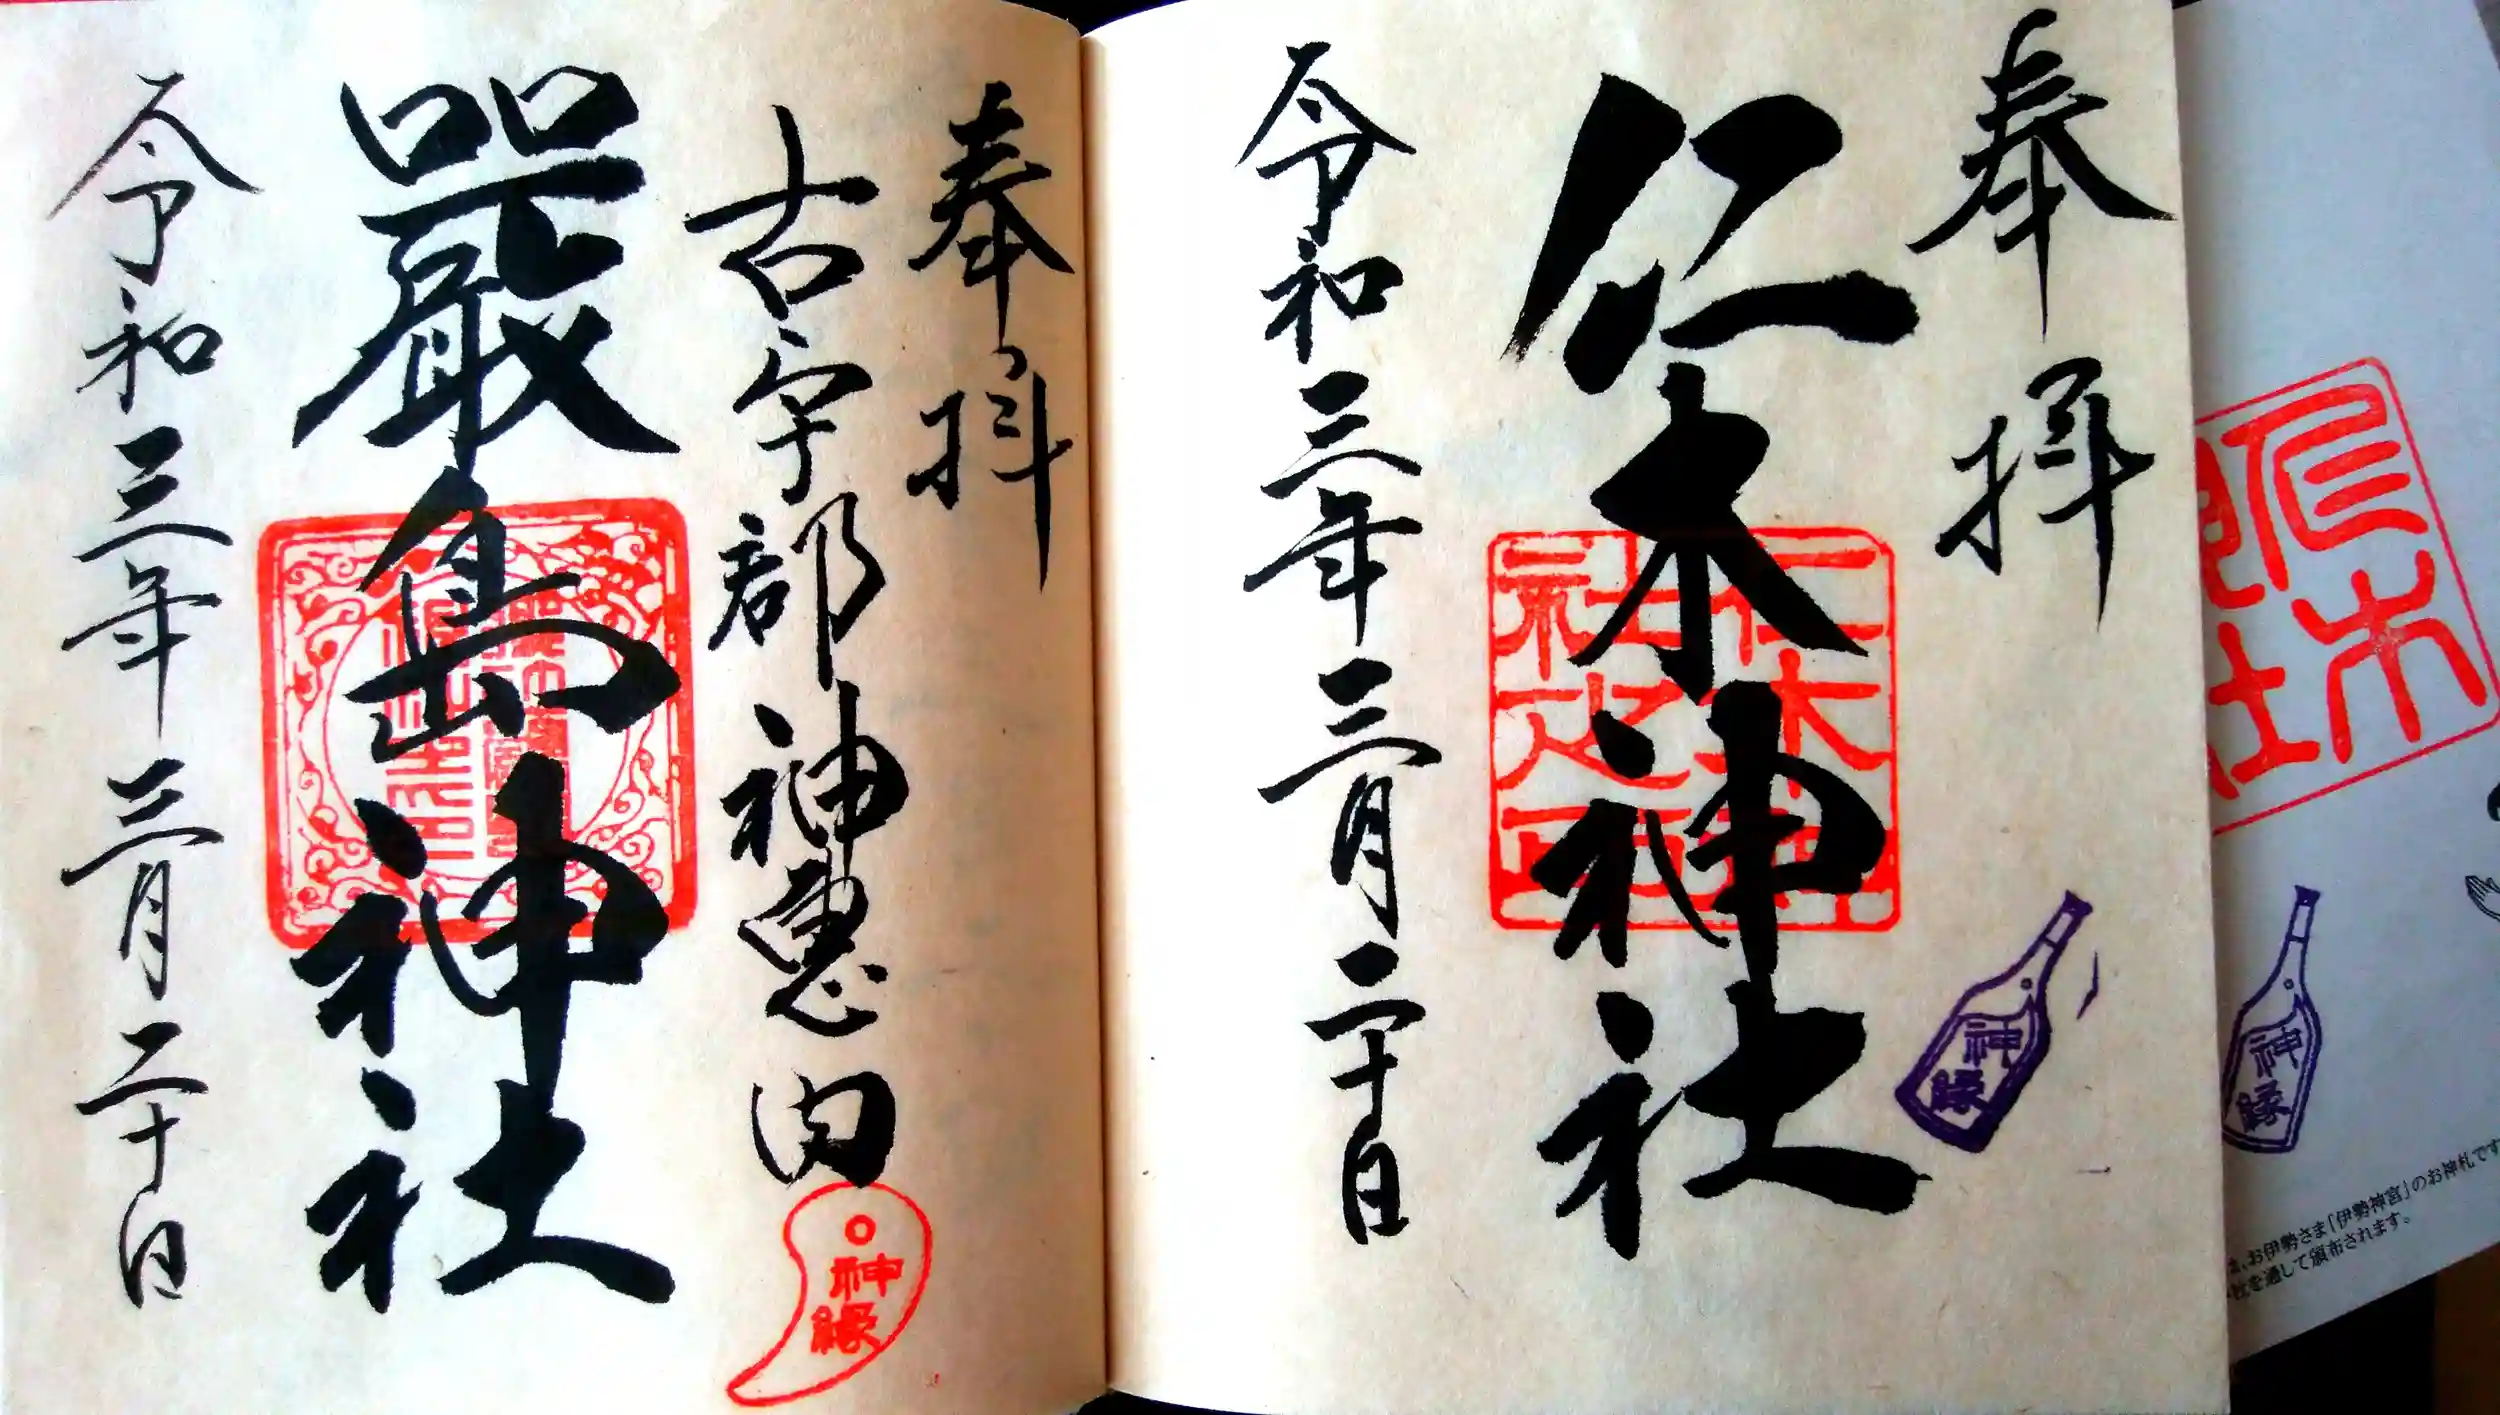 奉拝
仁木神社
令和三年三月二十日
神縁
奉拝
古宇部神恵内
神縁
嚴島神社
令和三年三月二十日
仁木
神縁
お伊勢さま「伊勢神宮」のお神札です
社を通して頒布されます。